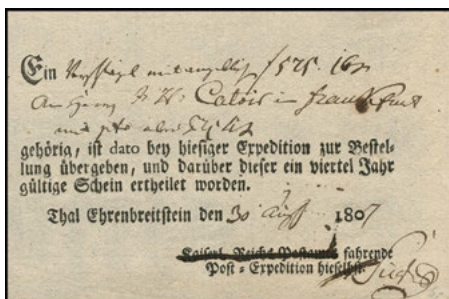 Ein versiegelt mit angeblich f 575. 16x
An Herrn Catoir in Frankfurt
gehörig, ist dato bey hiesiger Expedition zur Bestel-
lung übergeben, und darüber dieser ein viertel Jahr
gültige Schein ertheilet worden.
Thal Ehrenbreitstein den 30 Aug 1807
Kaiserl. Reichs Postamts fahrende
Post-Expedition hieselbst.